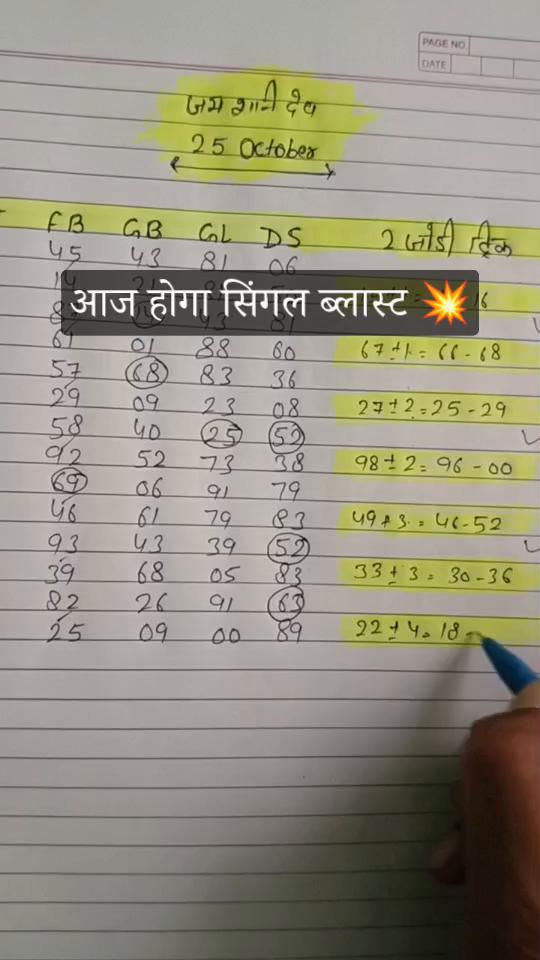 PAGE NO
DATE
जय शनी देव
25 October
FB GB GL DS 2 जोडी ट्रिक
45 43 81 06
आज होगा सिंगल ब्लास्ट 💥 16
61 01 88 60 67±1 = 66-68
57 68 83 36
29 09 23 08 27±2 = 25-29
58 40 25 52
92 52 73 38 98±2 = 96-00
69 06 91 79
46 61 79 83 49±3 = 46-52
93 43 39 52
39 68 05 83 33±3 = 30-36
82 26 91 63
25 09 00 89 22±4 = 18-